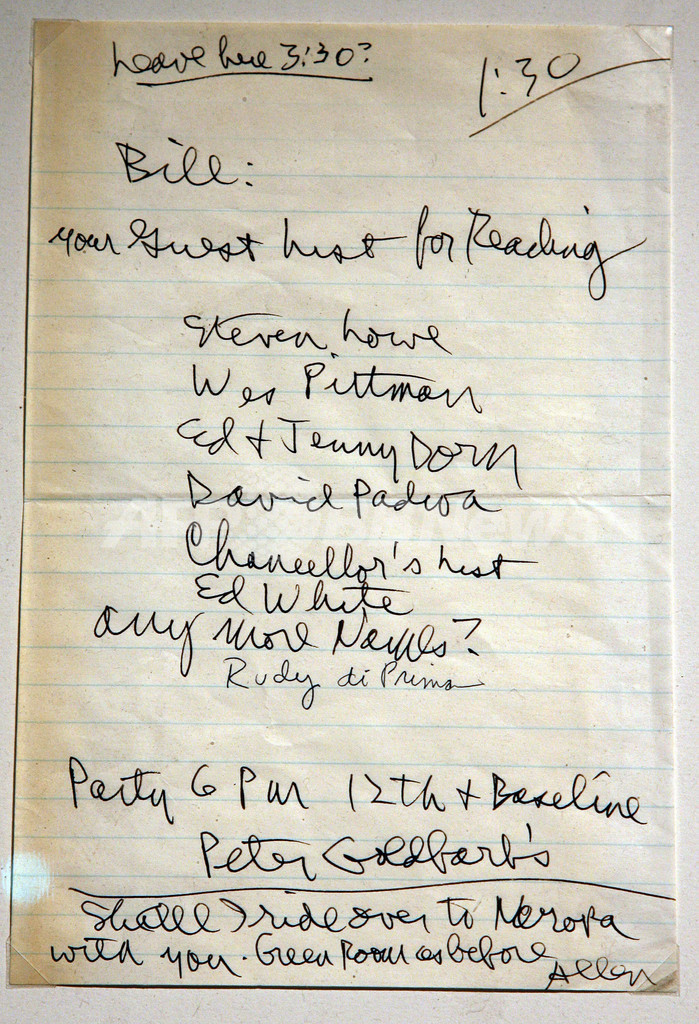 Leave here 3:30?
1:30
Bill:
your Guest List for Reading
Steven Lowe
Wes Pittman
Ed + Jenny Dorn
David Padwa
Chancellor's List
Ed White
any more Names?
Rudy di Prima
Party 6 PM 12th + Baseline
Peter Goldfarb's
Shall I ride over to Naropa
with you. Green Room as before
Allen